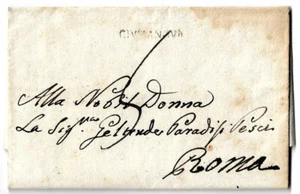 Alla Nobil Donna
La Sig.ra Geltrude Paradisi Pesci
Roma